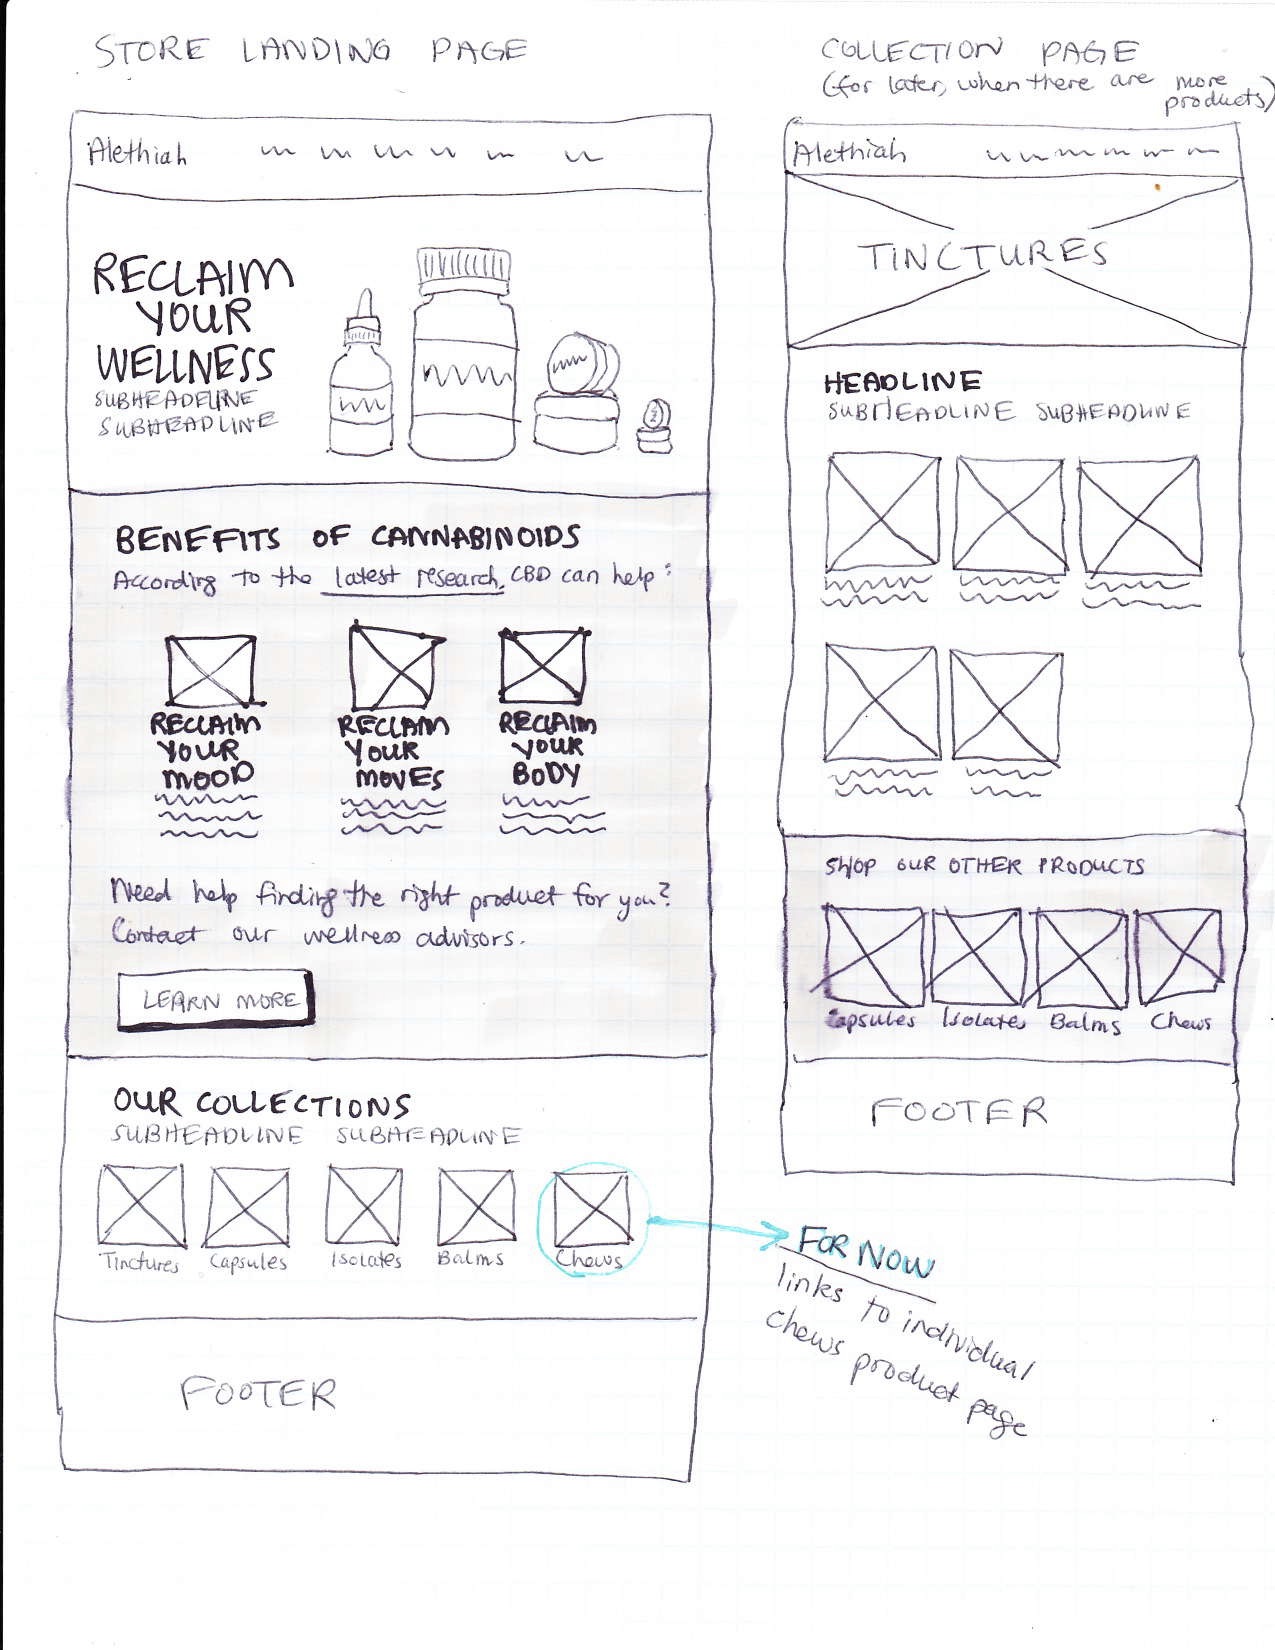 STORE LANDING PAGE
Alethiah
RECLAIM
YOUR
WELLNESS
SUBHEADLINE
SUBHEADLINE
BENEFITS OF CANNABINOIDS
According to the latest research, CBD can help:
RECLAIM
YOUR
MOOD
RECLAIM
YOUR
MOVES
RECLAIM
YOUR
BODY
Need help finding the right product for you?
Contact our wellness advisors.
LEARN MORE
OUR COLLECTIONS
SUBHEADLINE SUBHEADLINE
Tinctures Capsules Isolates Balms Chews
FOOTER
COLLECTION PAGE
(for later, when there are more
products)
Alethiah
TINCTURES
HEADLINE
SUBHEADLINE SUBHEADLINE
SHOP OUR OTHER PRODUCTS
Capsules Isolates Balms Chews
FOOTER
FOR NOW
links to individual
chews product page